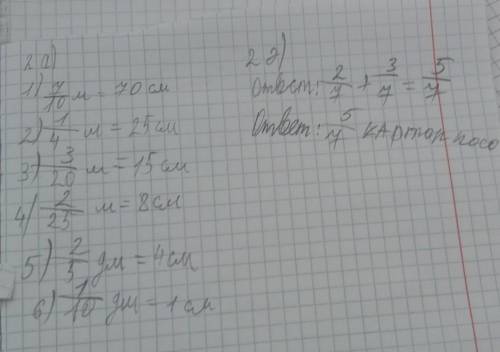 2 а)
1) 7/10 м = 70 см
2) 1/4 м = 25 см
3) 3/20 м = 15 см
4) 2/25 м = 8 см
5) 2/5 дм = 4 см
6) 1/10 дм = 1 см
2 д)
Ответ: 2/7 + 3/7 = 5/7
Ответ: 5/7